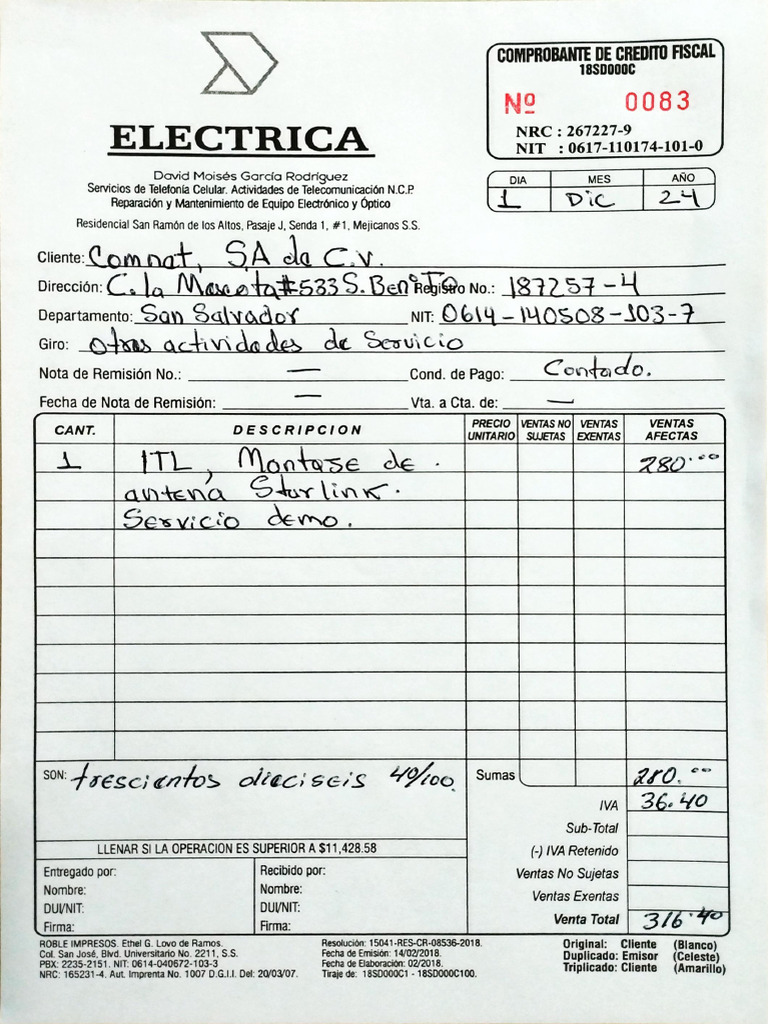 COMPROBANTE DE CREDITO FISCAL
18SD000C
Nº 0083
NRC : 267227-9
NIT : 0617-110174-101-0
ELECTRICA
David Moisés García Rodríguez
Servicios de Telefonía Celular. Actividades de Telecomunicación N.C.P.
Reparación y Mantenimiento de Equipo Electrónico y Óptico
Residencial San Ramón de los Altos, Pasaje J, Senda 1, #1, Mejicanos S.S.
DIA MES AÑO
1 Dic 24
Cliente: Comnet, SA de C.V.
Dirección: C. la Mascota #533 S. Benito Registro No.: 187257-4
Departamento: San Salvador NIT: 0614-140508-103-7
Giro: otras actividades de Servicio
Nota de Remisión No.: — Cond. de Pago: Contado.
Fecha de Nota de Remisión: — Vta. a Cta. de: —
CANT. DESCRIPCION PRECIO UNITARIO VENTAS NO SUJETAS VENTAS EXENTAS VENTAS AFECTAS
1 ITL, Montase de 280.00
antena Starlink.
Servicio demo.
SON: trescientos dieciseis 40/100. Sumas 280.00
IVA 36.40
Sub-Total
(-) IVA Retenido
Ventas No Sujetas
Ventas Exentas
Venta Total 316.40
LLENAR SI LA OPERACION ES SUPERIOR A $11,428.58
Entregado por: Recibido por:
Nombre: Nombre:
DUI/NIT: DUI/NIT:
Firma: Firma:
ROBLE IMPRESOS. Ethel G. Lovo de Ramos.
Col. San José, Blvd. Universitario No. 2211, S.S.
PBX: 2235-2151. NIT: 0614-040672-103-3
NRC: 165231-4. Aut. Imprenta No. 1007 D.G.I.I. Del: 20/03/07.
Resolución: 15041-RES-CR-08536-2018.
Fecha de Emisión: 14/02/2018.
Fecha de Elaboración: 02/2018.
Tiraje de: 18SD000C1 - 18SD000C100.
Original: Cliente (Blanco)
Duplicado: Emisor (Celeste)
Triplicado: Cliente (Amarillo)